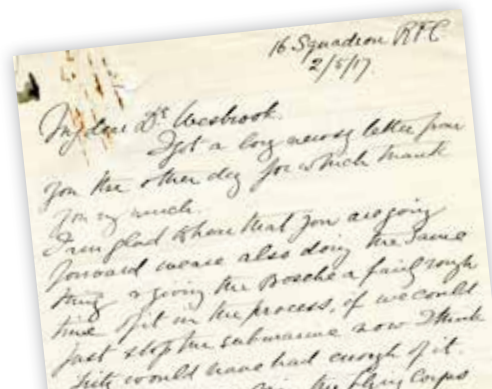 16 Squadron RFC
2/5/17.
My dear Dr Wesbrook.
I got a long newsy letter from
you the other day for which thank
you very much.
I am glad to hear that you are going
forward we are also doing the same
thing & giving the Bosche a fairly rough
time of it in the process, if we could
just stop the submarine now I think
Fritz would have had enough of it.
the Flying Corps